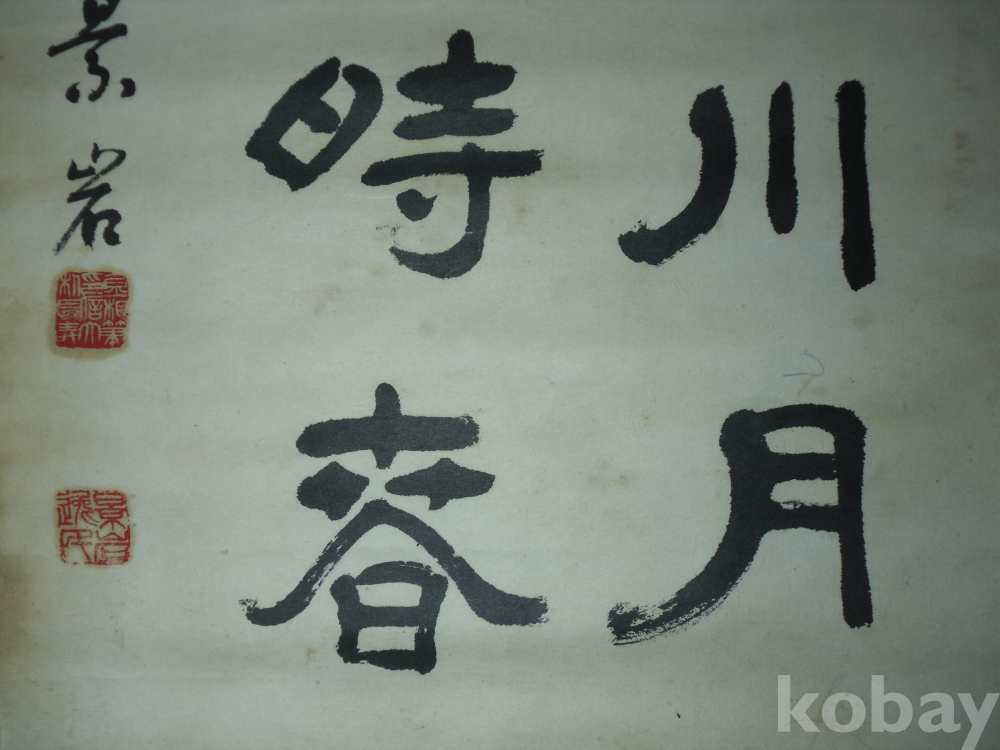 川月
時春
景岩
kobay